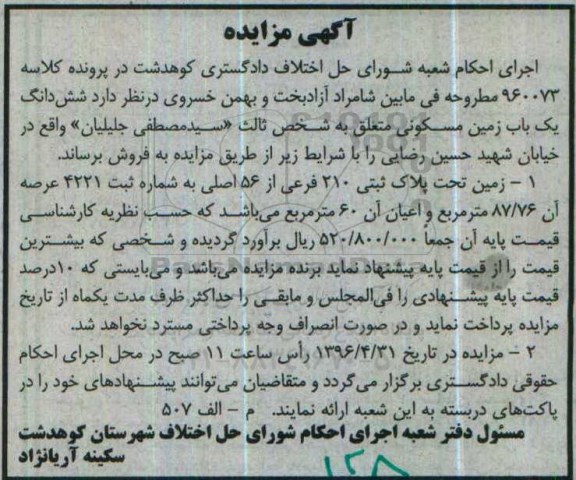 آگهی مزایده
اجرای احکام شعبه شورای حل اختلاف دادگستری کوهدشت در پرونده کلاسه
۹۶۰۰۷۳ مطروحه فی مابین شامراد آزادبخت و بهمن خسروی درنظر دارد شش‌دانگ
یک باب زمین مسکونی متعلق به شخص ثالث «سیدمصطفی جلیلیان» واقع در
خیابان شهید حسین رضایی را با شرایط زیر از طریق مزایده به فروش برساند.
۱ – زمین تحت پلاک ثبتی ۲۱۰ فرعی از ۵۶ اصلی به شماره ثبت ۴۲۲۱ عرصه
آن ۸۷/۷۶ مترمربع و اعیان آن ۶۰ مترمربع می‌باشد که حسب نظریه کارشناسی
قیمت پایه آن جمعاً ۵۲۰/۸۰۰/۰۰۰ ریال برآورد گردیده و شخصی که بیشترین
قیمت را از قیمت پایه پیشنهاد نماید برنده مزایده می‌باشد و می‌بایستی که ۱۰درصد
قیمت پایه پیشنهادی را فی‌المجلس و مابقی را حداکثر ظرف مدت یکماه از تاریخ
مزایده پرداخت نماید و در صورت انصراف وجه پرداختی مسترد نخواهد شد.
۲ – مزایده در تاریخ ۱۳۹۶/۴/۳۱ رأس ساعت ۱۱ صبح در محل اجرای احکام
حقوقی دادگستری برگزار می‌گردد و متقاضیان می‌توانند پیشنهادهای خود را در
پاکت‌های دربسته به این شعبه ارائه نمایند. م – الف ۵۰۷
مسئول دفتر شعبه اجرای احکام شورای حل اختلاف شهرستان کوهدشت
سکینه آریانژاد
۱۲۸